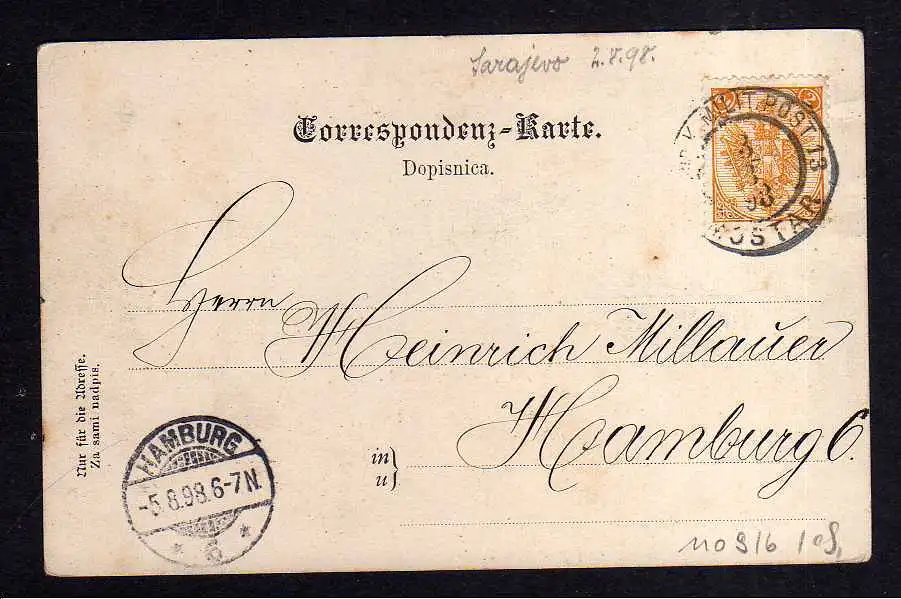 Sarajevo 2.8.98.
Correspondenz-Karte.
Dopisnica.
2
MILIT. POST 13
3
8
98
MOSTAR
Herrn
Heinrich Millauer
Hamburg 6.
in
u
Nur für die Adresse.
Za sami nadpis.
HAMBURG
-5.8.98.6-7N.
* 6 *
110 916